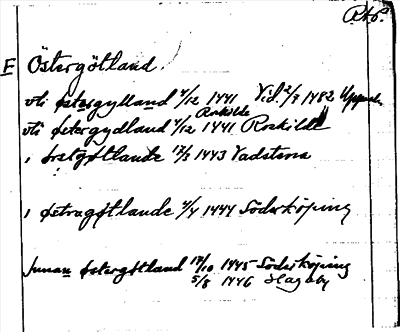 F Östergötland.
vti østergylland 4/12 1441 Vid. 2/7 1482 Uppsala
Roskilde
vti østergydland 4/12 1441 Roskilde
i østgøtlande 17/3 1443 Vadstena
i østragøtlande 4/4 1444 Söderköping
Junan østergøtland 17/10 1445 Söderköping
5/8 1446 Hagaby